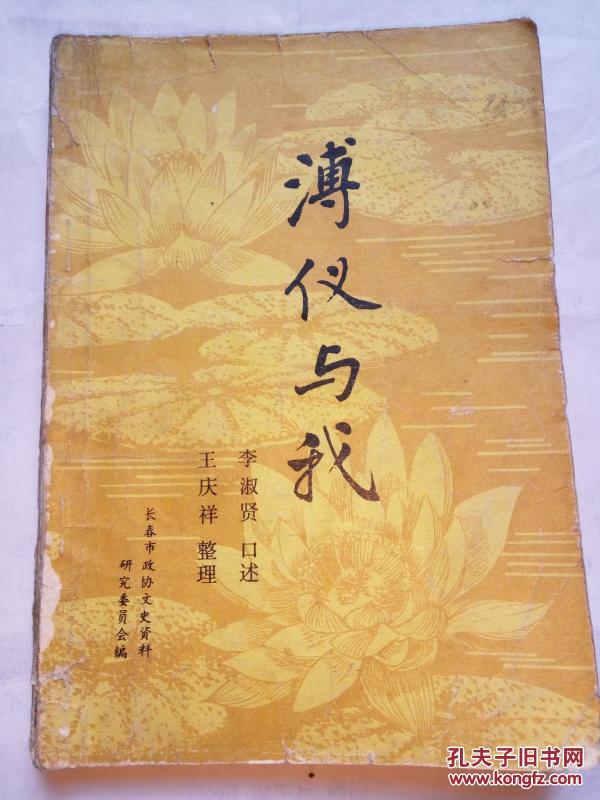 溥仪与我
李淑贤 口述
王庆祥 整理
长春市政协文史资料
研究委员会编
孔夫子旧书网
www.kongfz.com